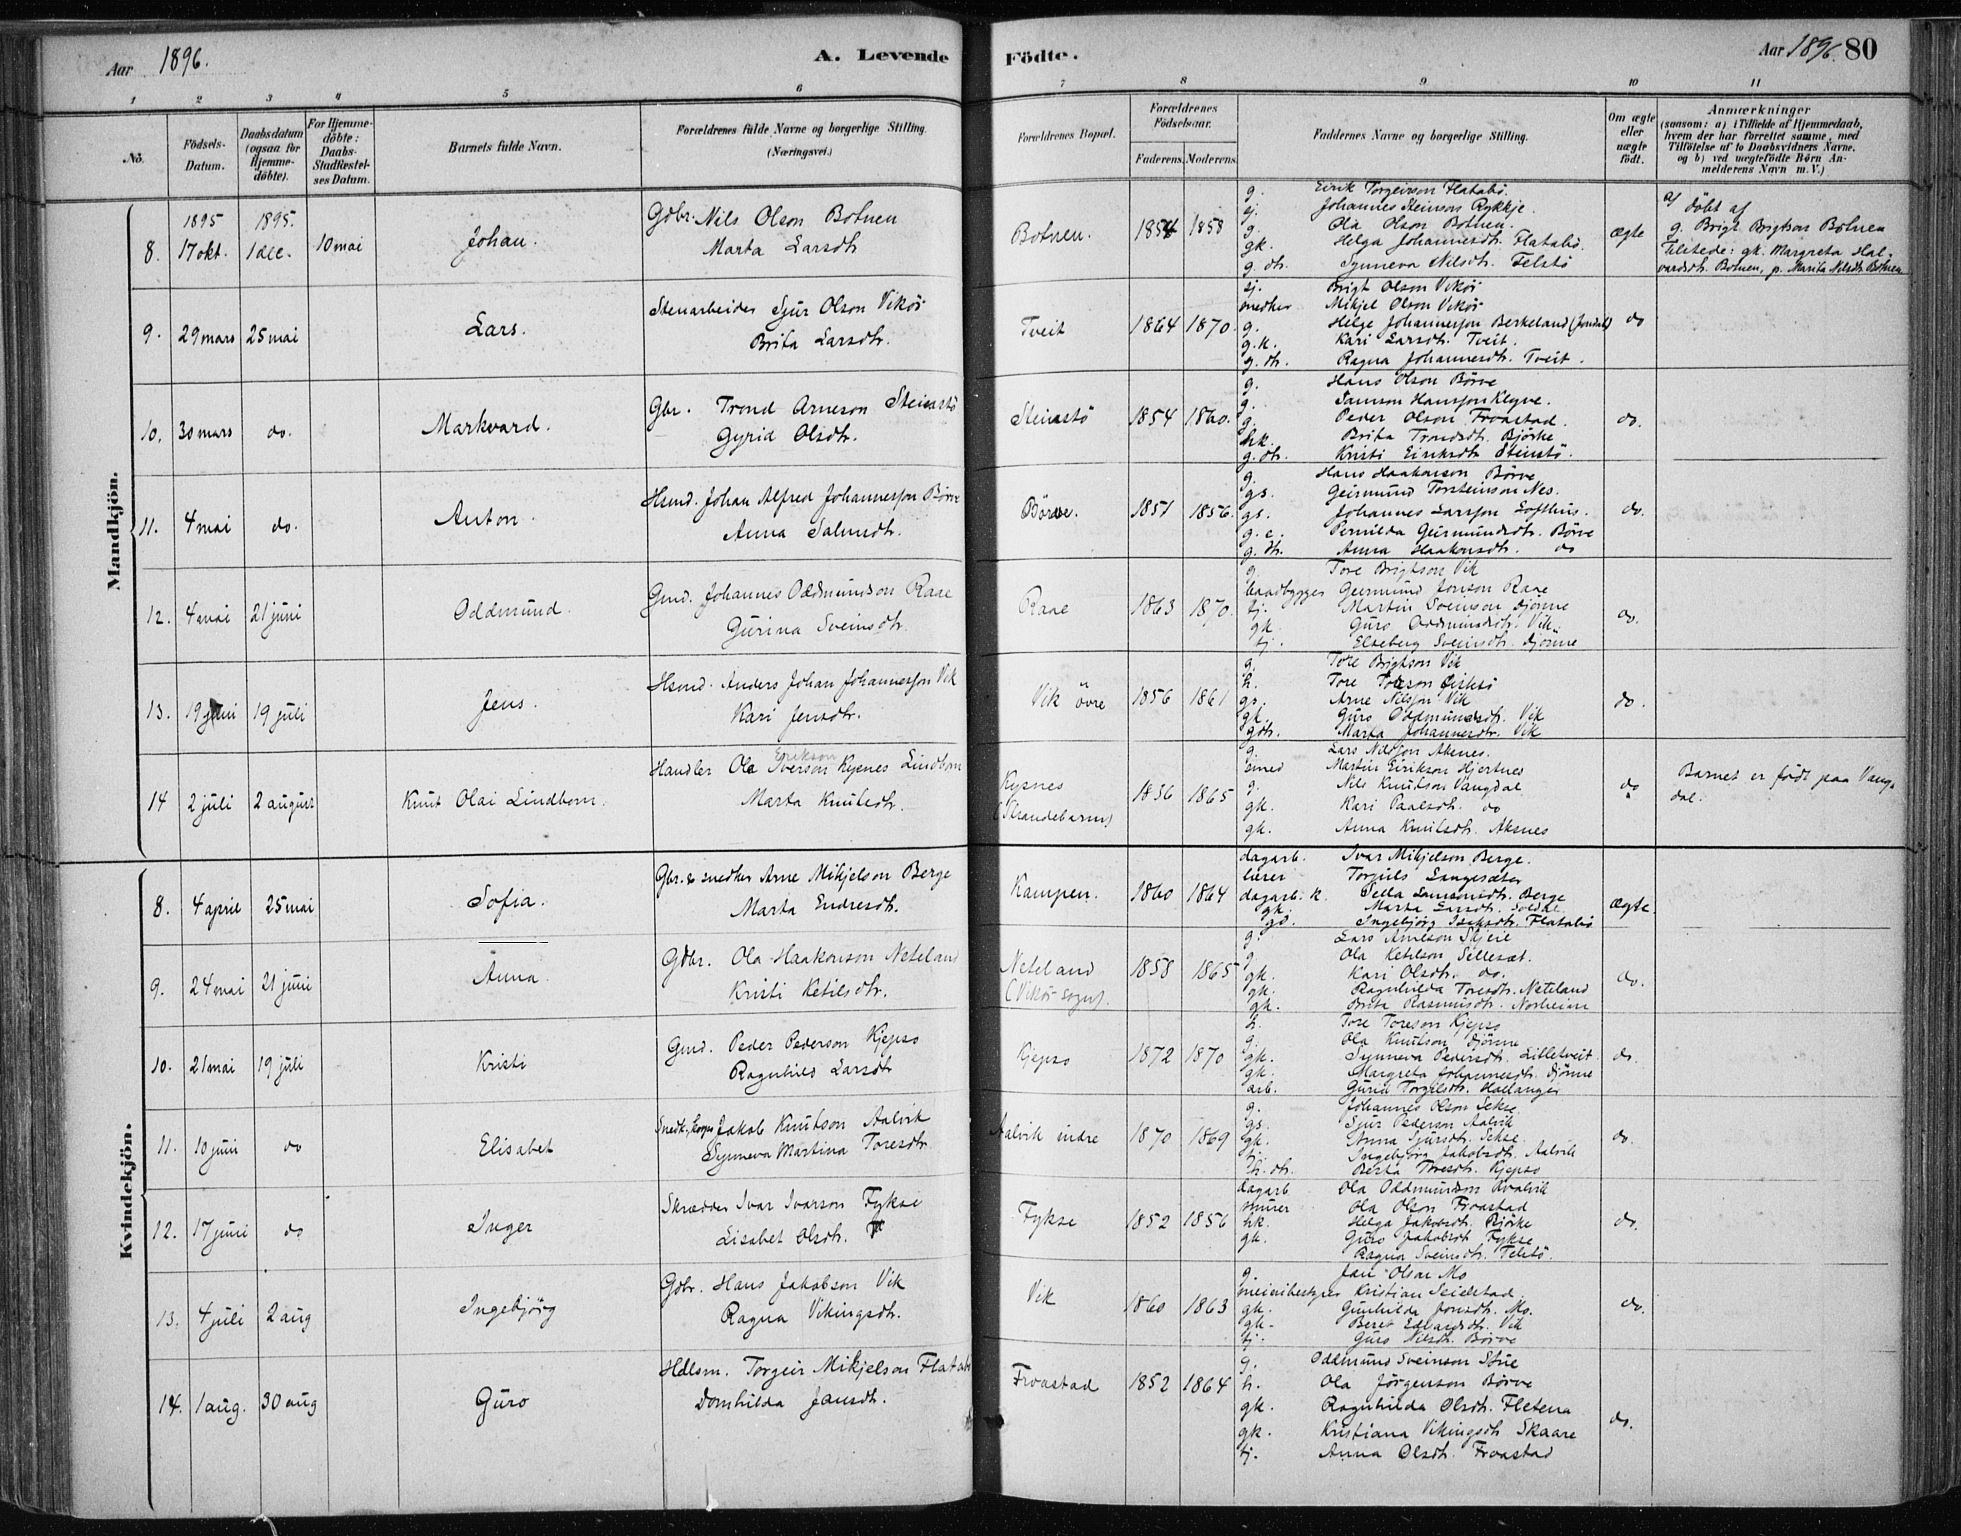 Aar 1896.
A. Levende
Födte.
Aar 1896. 80
1 2 3 4 5 6 7 8 9 10 11
No.
Födsels-Datum.
Daabsdatum (ogsaa for Hjemme-döbte).
For Hjemme-döbte: Daabs-Stadfæstel-ses Datum.
Barnets fulde Navn.
Forældrenes fulde Navne og borgerlige Stilling. (Næringsvei.)
Forældrenes Bopæl.
Forældrenes Födselsaar.
Faderens. Moderens.
Faddernes Navne og borgerlige Stilling.
Om ægte eller uægte födt.
Anmærkninger
(saasom: a) i Tilfælde af Hjemmedaab,
hvem der har forrettet samme, med
Tilföielse af to Daabsvidners Navne,
og b) ved uægtefödte Börn An-
melderens Navn m. V.)
Mandkjön.
8. 1895 17 okt. 1895. 1 dec. 10 mai Johan.
Gdbr. Nils Olson Botnen
Marta Larsdtr
Botnen. 1854 1858
g. Eirik Torgeirson Flatabö.
sj. Johannes Steinson Rykkje.
g. Ola Olson Botnen.
gk. Helga Johannesdtr. Flatabö.
g. dtr. Synneva Nilsdtr. Felstö
ægte
a) döbt af
g. Brigt Brigtson Botnen
Tilstede: gk. Margreta Hal-
vardsdtr. Botnen, p. Marita Nilsdtr. Botnen
9. 29 mars 25 mai Lars.
Stenarbeider Sjur Olson Vikör
Brita Larsdtr.
Tveit 1864 1870.
sj. Brigt Olson Vikör
snedker Mikjel Olson Vikör
g. Helge Johannesson Berkeland (Jondal)
g.k. Kari Larsdtr. Tveit.
g. dtr. Ragna Johannesdtr. Tveit.
do
10. 30 mars do. Markvard.
Gbr. Trond Arneson Steinstö
Gyrid Olsdtr.
Steinstö 1854 1860.
g. Hans Olson Börve
g. Samson Hansson Klyve.
g. Peder Olson Froastad.
hk. Brita Trondsdtr. Björke
g. dtr. Kristi Eiriksdtr Steinstö.
do.
11. 4 mai do. Anton.
Hsmd. Johan Alfred Johannesson Börve
Anna Salmdtr.
Börve. 1851 1856.
g. Hans Haakonson Börve
gs. Geirmund Torsteinson Nes.
gs. Johannes Larsson Lofthus.
g. e. Pernilda Geirmundsdtr. Börve
g. dtr. Anna Haakonsdtr. do
do.
12. 4 mai 21 juni Oddmund.
Gmd. Johannes Oddmundson Raae
Gurina Sveinsdtr.
Raae 1863 1870.
g. Tore Brigtson Vik
baadbygger Geirmund Jonson Raae
tj. Martin Sveinson Djönne
gk. Guro Oddmundsdtr. Vik.
tj. Elseberg Sveinsdtr. Djönne
do.
13. 19 juni 19 juli Jens.
Hsmd. Anders Johan Johannesson Vik
Kari Jensdtr.
Vik övre 1856 1861
g. Tore Brigtson Vik
h. Tore Toreson
gs. Arne Nilsson Vik
gk. Guro Oddmundsdtr. Vik
gdtr. Marta Johannesdtr. Vik
do.
14 2 juli 2 august Knut Olai Lindbom.
Handler Ola Iverson Kysnes Lindbom
Erikson
Marta Knutsdtr.
Kysnes (Strandebarm) 1836 1865
g. Lars Nilsson Aksnes.
Martin Eirikson Hjertnes
g. Nils Knutson Vangdal.
gk. Kari Paalsdtr. do
gk. Anna Knutsdtr. Aksnes
do
Barnet er födt paa Vang-
dal.
Kvindekjön.
8. 4 april 25 mai Sofia.
Gbr. & snedker Arne Mikjelson Berge
Marta Endresdtr.
Kampen. 1860 1864
dagarb. Ivar Mikjelson Berge.
lærer Torgils Langesæter
dagarb. k. Sella Samsonsdtr. Berge
gk. Marta Larsdtr. Soldal
gd. Ingebjörg Isaksdtr. Flatabö
ægte.
9. 24 mai 21 juni Anna
Gdbr. Ola Haakonson Neteland
Kristi Ketilsdtr.
Neteland (Vikör sogn). 1858 1865
g. Lars Arneson Skjeie
g. Ola Ketilson Sellesæt.
gk. Kari Olsdtr. do.
gk. Ragnhilda Toresdtr. Neteland
gk. Brita Rasmusdtr. Norheim
do.
10. 21 mai 19 juli Kristi
Gmd. Peder Pederson Kjepso
Ragnhild Larsdtr
Kjepso 1872 1870
h. Tore Toreson Kjepso
g. Ola Knutson Djönne
gk. Synneva Pedersdtr. Lilletveit.
gk. Margreta Johannesdtr. Djönne
arb. Gurid Torgilsdtr. Hallanger
do.
11. 10 juni do Elisabet
Jakob Knutson Aalvik
Synneva Martina Toresdtr.
Aalvik indre 1870 1869
g. Johannes Olson Sekse
gs. Sjur Pederson Aalvik
gk. Anna Sjursdtr. Sekse
tj. Ingebjörg Jakobsdtr. Aalvik
h. dtr. Berta Toresdtr. Kjepso
do.
12. 17 juni do Inger
Skrædder Ivar Ivarson Fykse
Lisabet Olsdtr.
Fykse 1852 1856
dagarb Ola Oddmundson Kvalvik
murer Ola Olson Froastad
hk. Helga Jakobsdtr. Björke
gk. Guro Jakobsdtr Fykse
Ragna Sveinsdtr. Telstö.
do.
13. 4 juli 2 aug Ingebjörg
Gdbr. Hans Jakobson Vik
Ragna Vikingsdtr.
Vik 1860 1863
g. Jan Olson Mo
meieribestyrer Kristian Seielstad
gk. Gunhilda Jonsdtr. Mo.
gk. Beret Edvardsdtr. Vik
tj. Guro Nilsdtr. Börve
do.
14. 1 aug. 30 aug Guro
Hdlsm. Torgeir Mikjelson Flatabö
Domhilda Jansdtr.
Froastad 1852 1864
g. Oddmund Sveinson Stue
h. Ola Jörgenson Börve
gk. Ragnhilda Olsdtr. Fletena
gk. Kristiana Vikingsdtr Skaare
tj. Anna Olsdtr. Froastad
do.